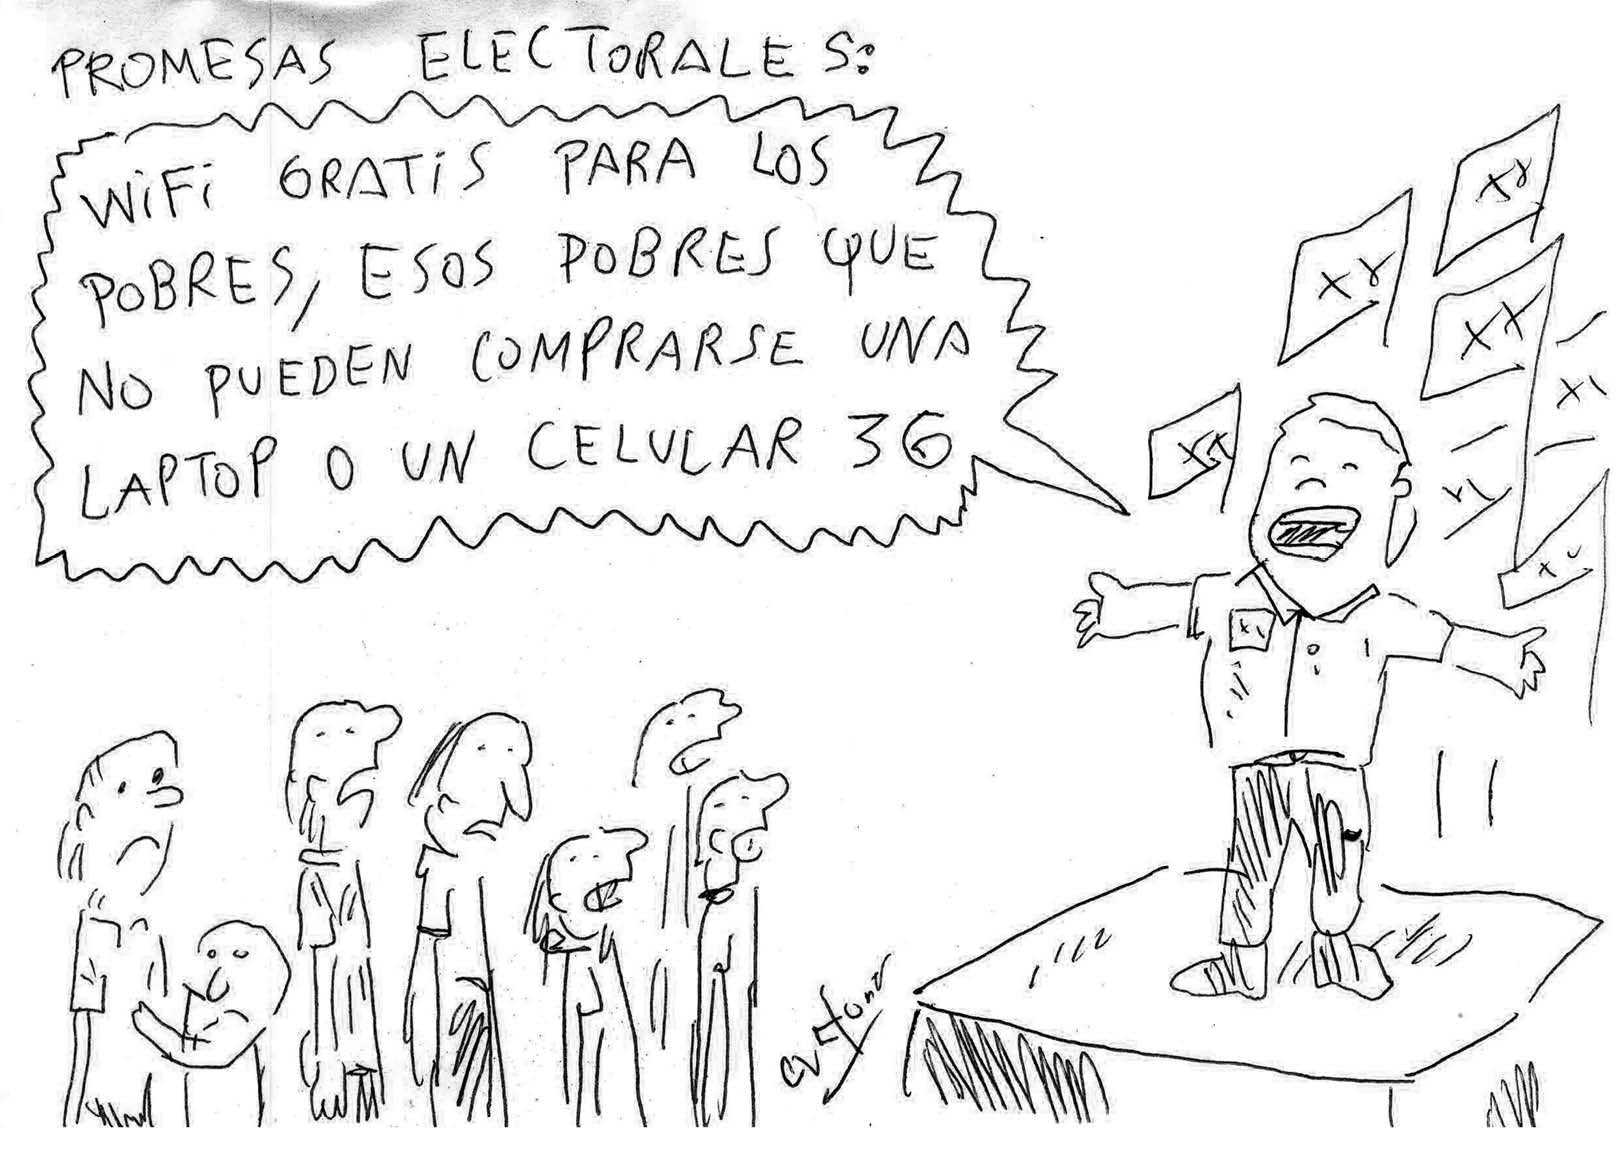 PROMESAS ELECTORALES:
WiFi GRATiS PARA LOS
POBRES, ESOS POBRES QUE
NO PUEDEN COMPRARSE UNA
LAPTOP O UN CELULAR 3G
XX
XX
XX